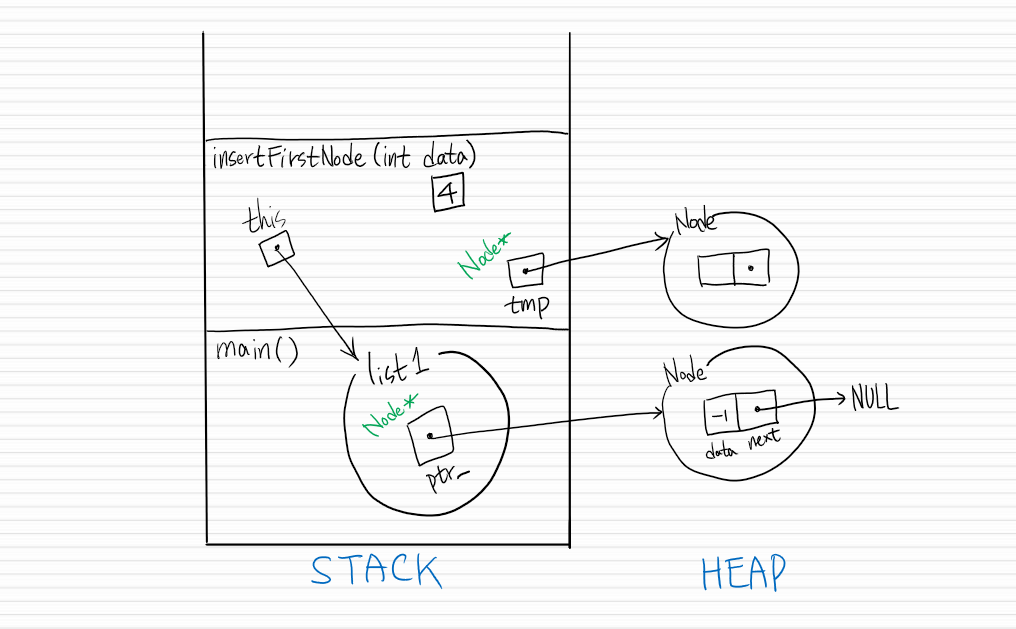 insertFirstNode (int data)
4
this
Node*
tmp
Node
main()
list1
Node*
ptr_
Node
-1
data next
NULL
STACK
HEAP